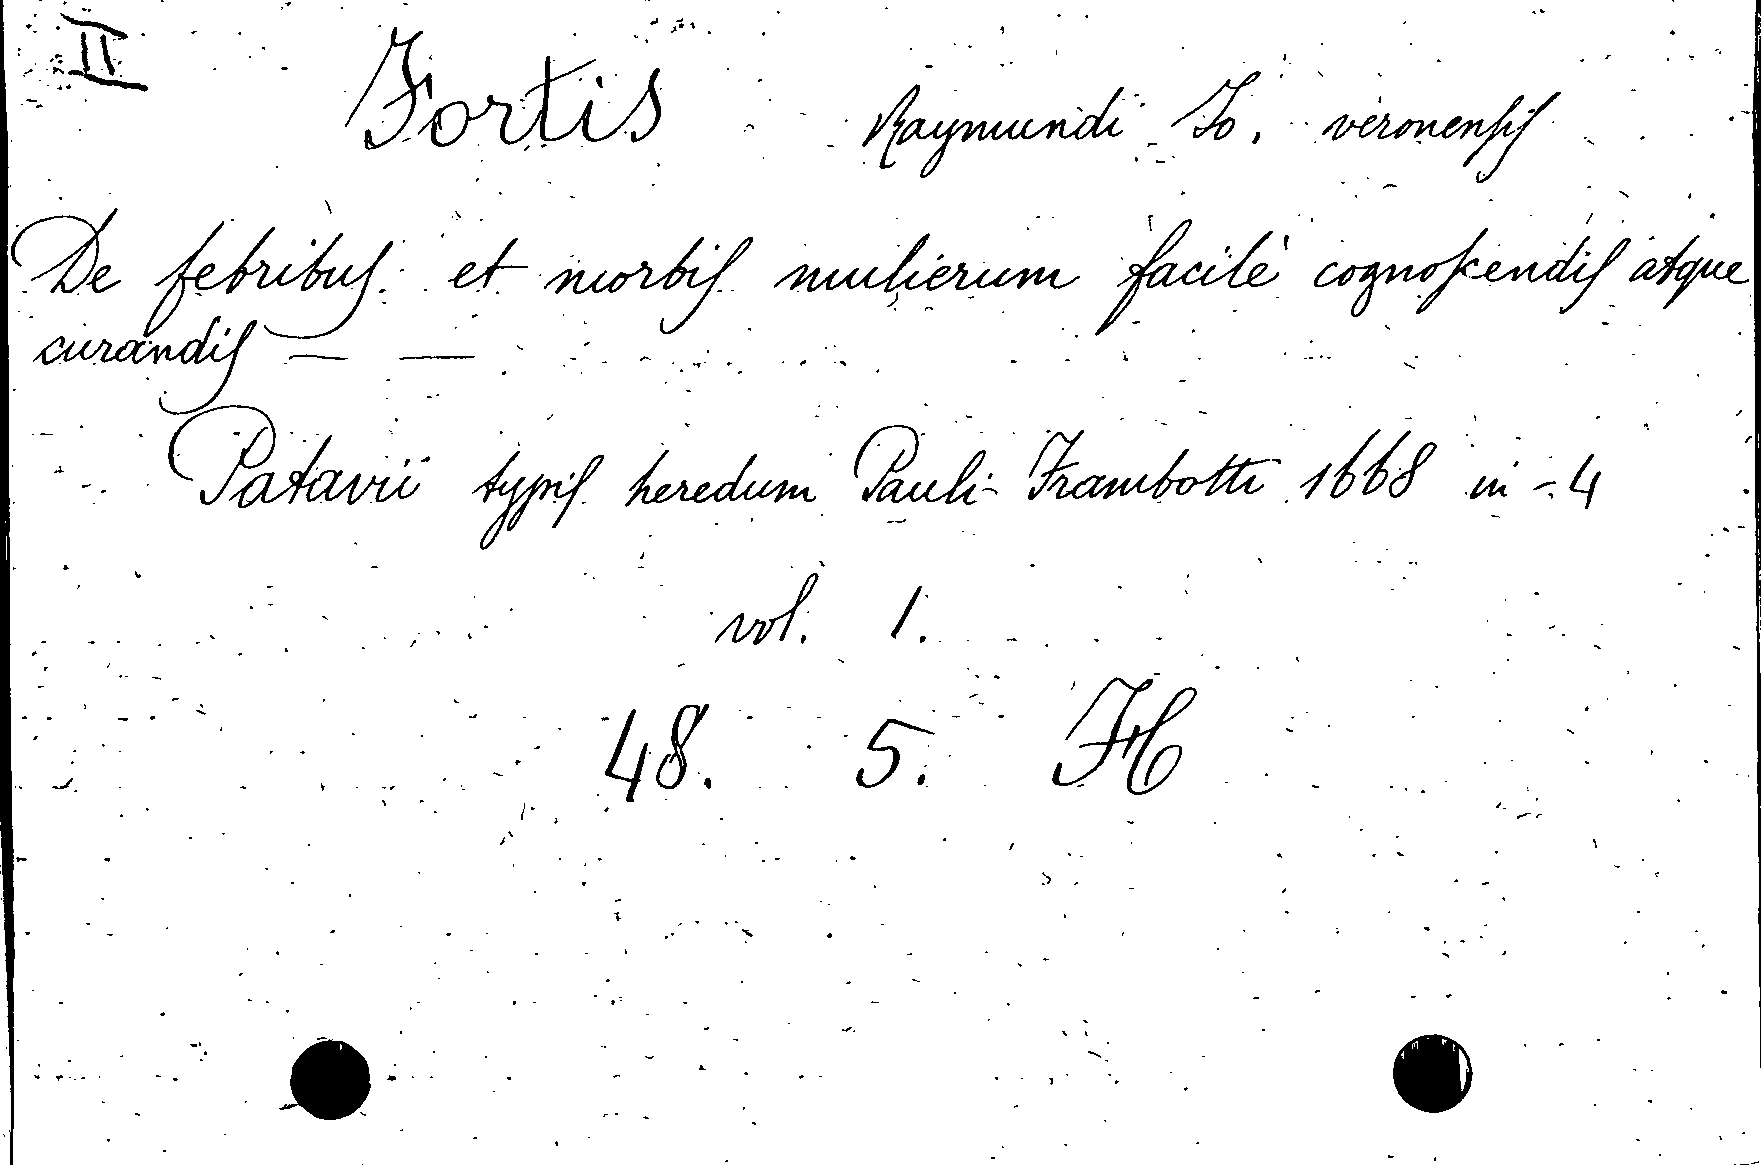 II
Fortis Raymundi Jo. veronensis
De febribus et morbis mulierum facilè cognoscendis atque
curandis — —
Patavii typis heredum Pauli Frambotti 1668 in-4
vol. 1.
48. 5. H